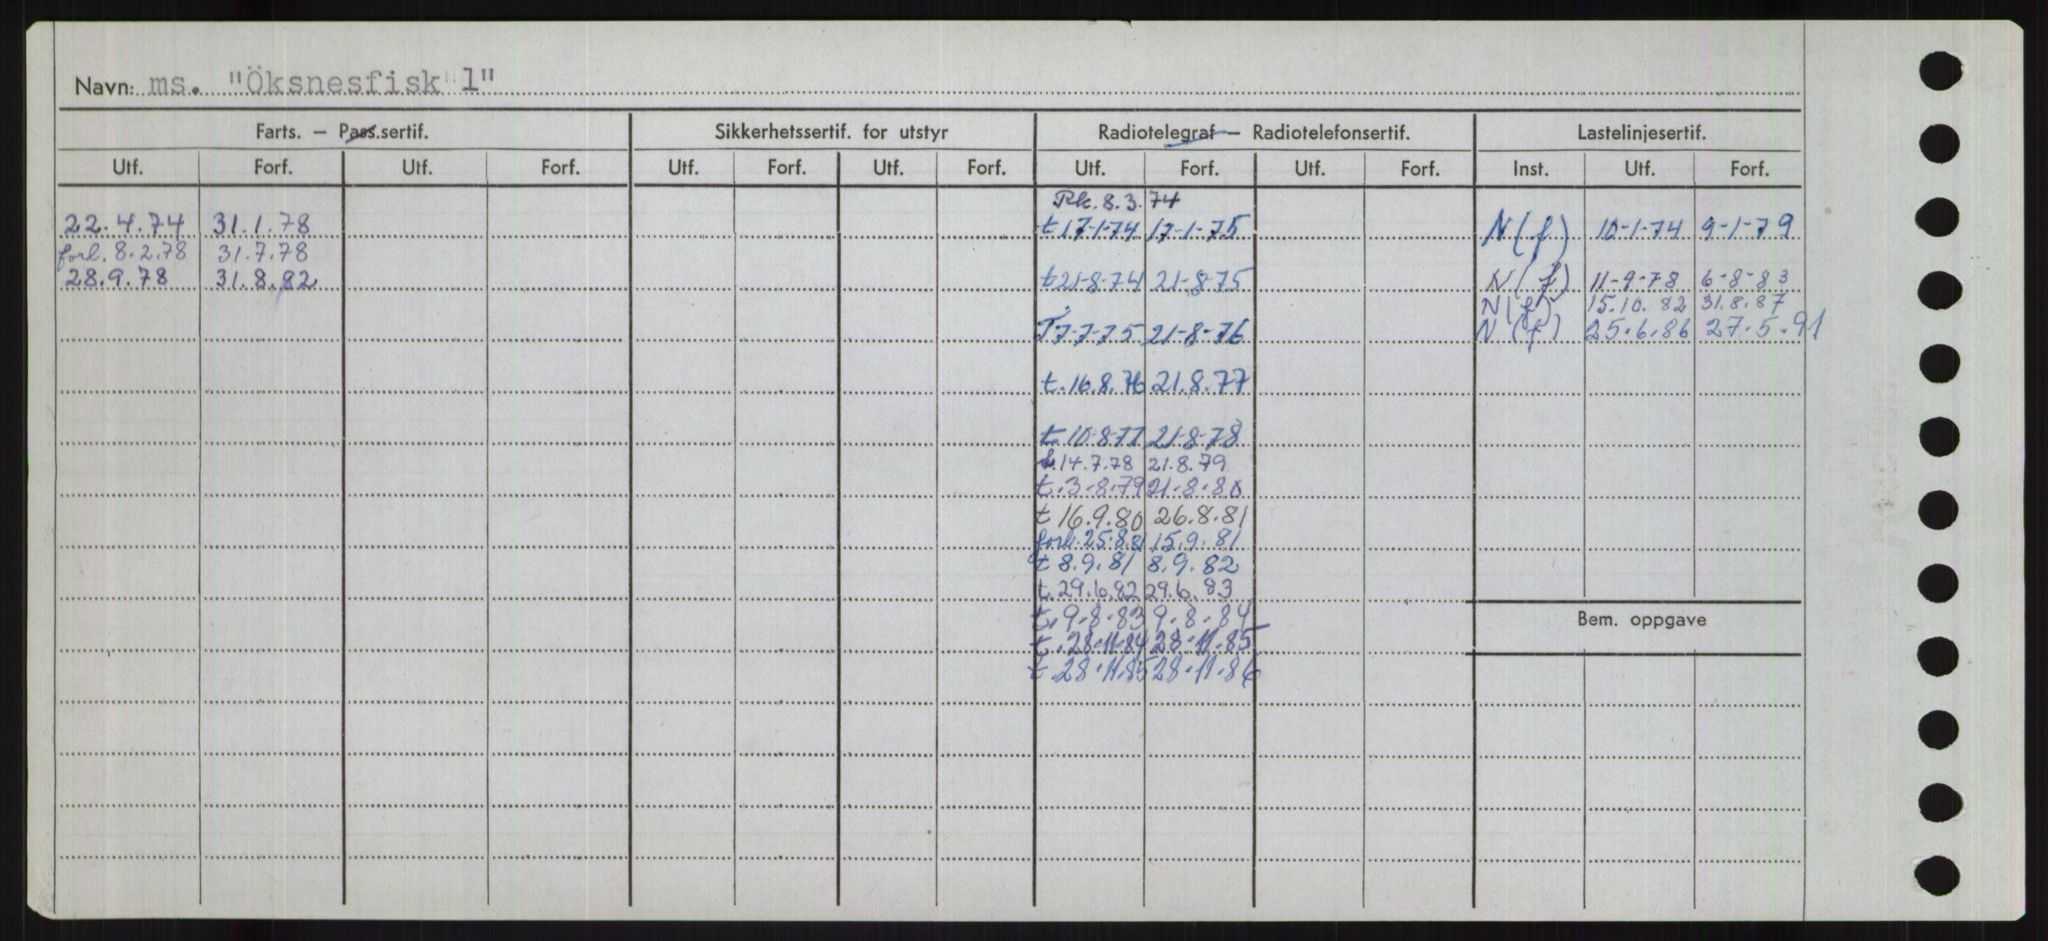 Navn: ms. "Öksnesfisk 1"
Farts. – Pass.sertif. Sikkerhetssertif. for utstyr Radiotelegraf – Radiotelefonsertif. Lastelinjesertif.
Utf. Forf. Utf. Forf. Utf. Forf. Utf. Forf. Utf. Forf. Utf. Forf. Inst. Utf. Forf.
Rk. 8.3.74
22.4.74 31.1.78 t 17-1-74 17-1-75 N(f) 10-1-74 9-1-79
forl. 8.2.78 31.7.78
28.9.78 31.8.82 t 21-8-74 21-8-75 N(f) 11-9-78 6-8-83
N(f) 15.10.82 31.8.87
T 7-7-75 21-8-76 N(f) 25.6.86 27.5.91
t. 16.8.76 21.8.77
t 10-8-77 21-8-78
t. 14.7.78 21.8.79
t. 3-8-79 21-8-80
t 16.9.80 26.8.81
forl. 25.8.81 15.9.81
t 8.9.81 8.9.82
t. 29.6.82 29.6.83
t. 9.8.83 9.8.84
Bem. oppgave
t. 28.11.84 28.11.85
t. 28.11.85 28.11.86